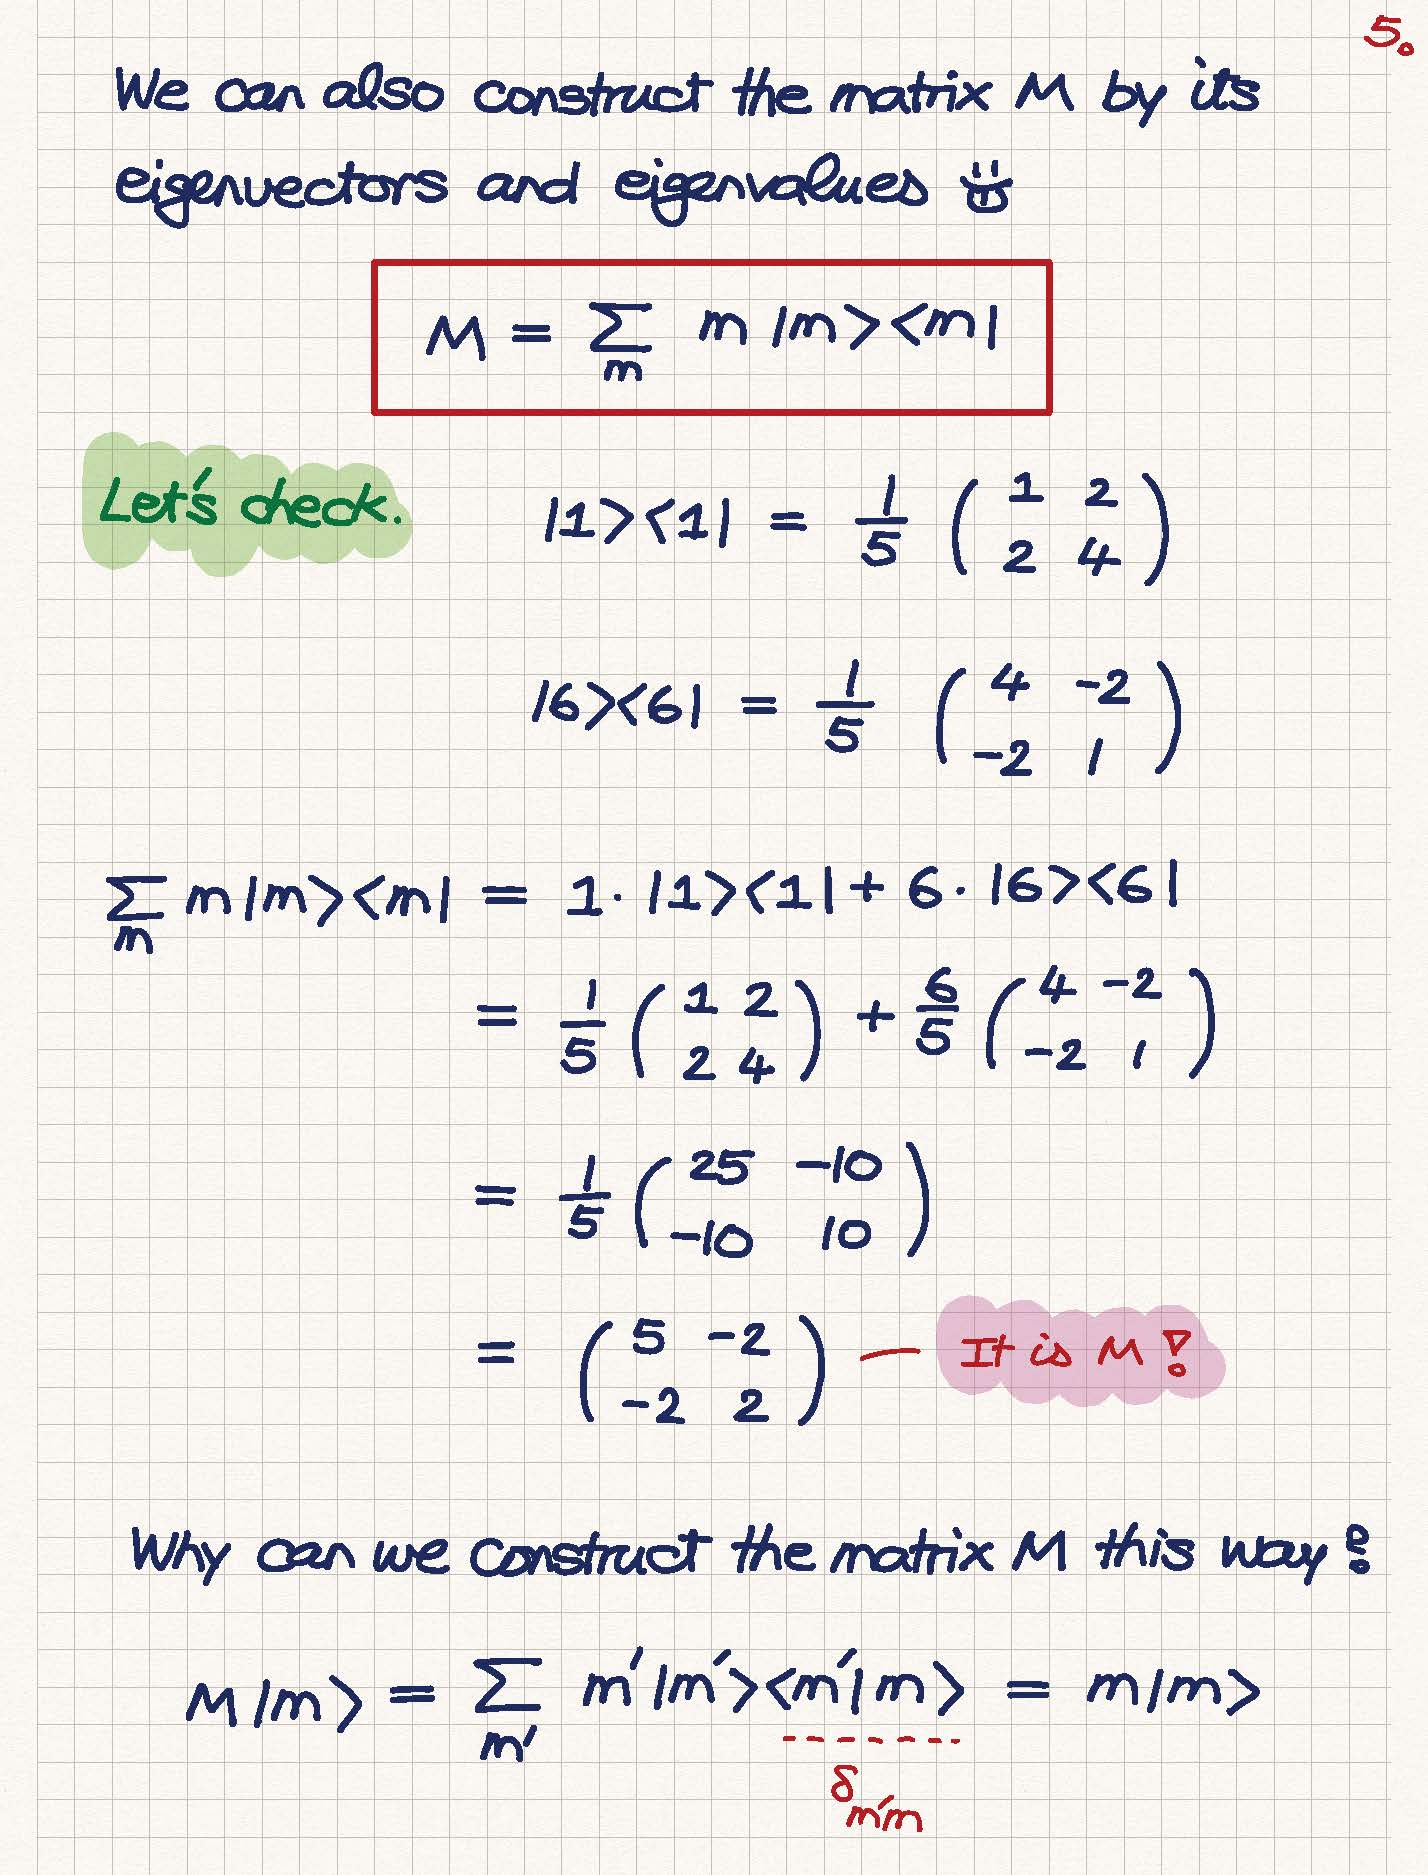 5.
We can also construct the matrix M by its
eigenvectors and eigenvalues
M = Σ_m m |m><m|
Let's check.
|1><1| = 1/5 ( 1 2 ; 2 4 )
|6><6| = 1/5 ( 4 -2 ; -2 1 )
Σ_m m|m><m| = 1·|1><1| + 6·|6><6|
= 1/5 ( 1 2 ; 2 4 ) + 6/5 ( 4 -2 ; -2 1 )
= 1/5 ( 25 -10 ; -10 10 )
= ( 5 -2 ; -2 2 ) — It is M !
Why can we construct the matrix M this way?
M|m> = Σ_m' m'|m'><m'|m> = m|m>
δ_m'm